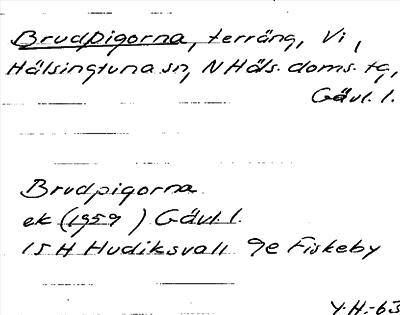 Brudpigorna, terräng, Vi,
Hälsingtuna sn, N Häls. doms. tg,
Gävl. l.
Brudpigorna
ek (1959 ) Gävl. l.
15 H Hudiksvall 9e Fiskeby
Y.H.-63